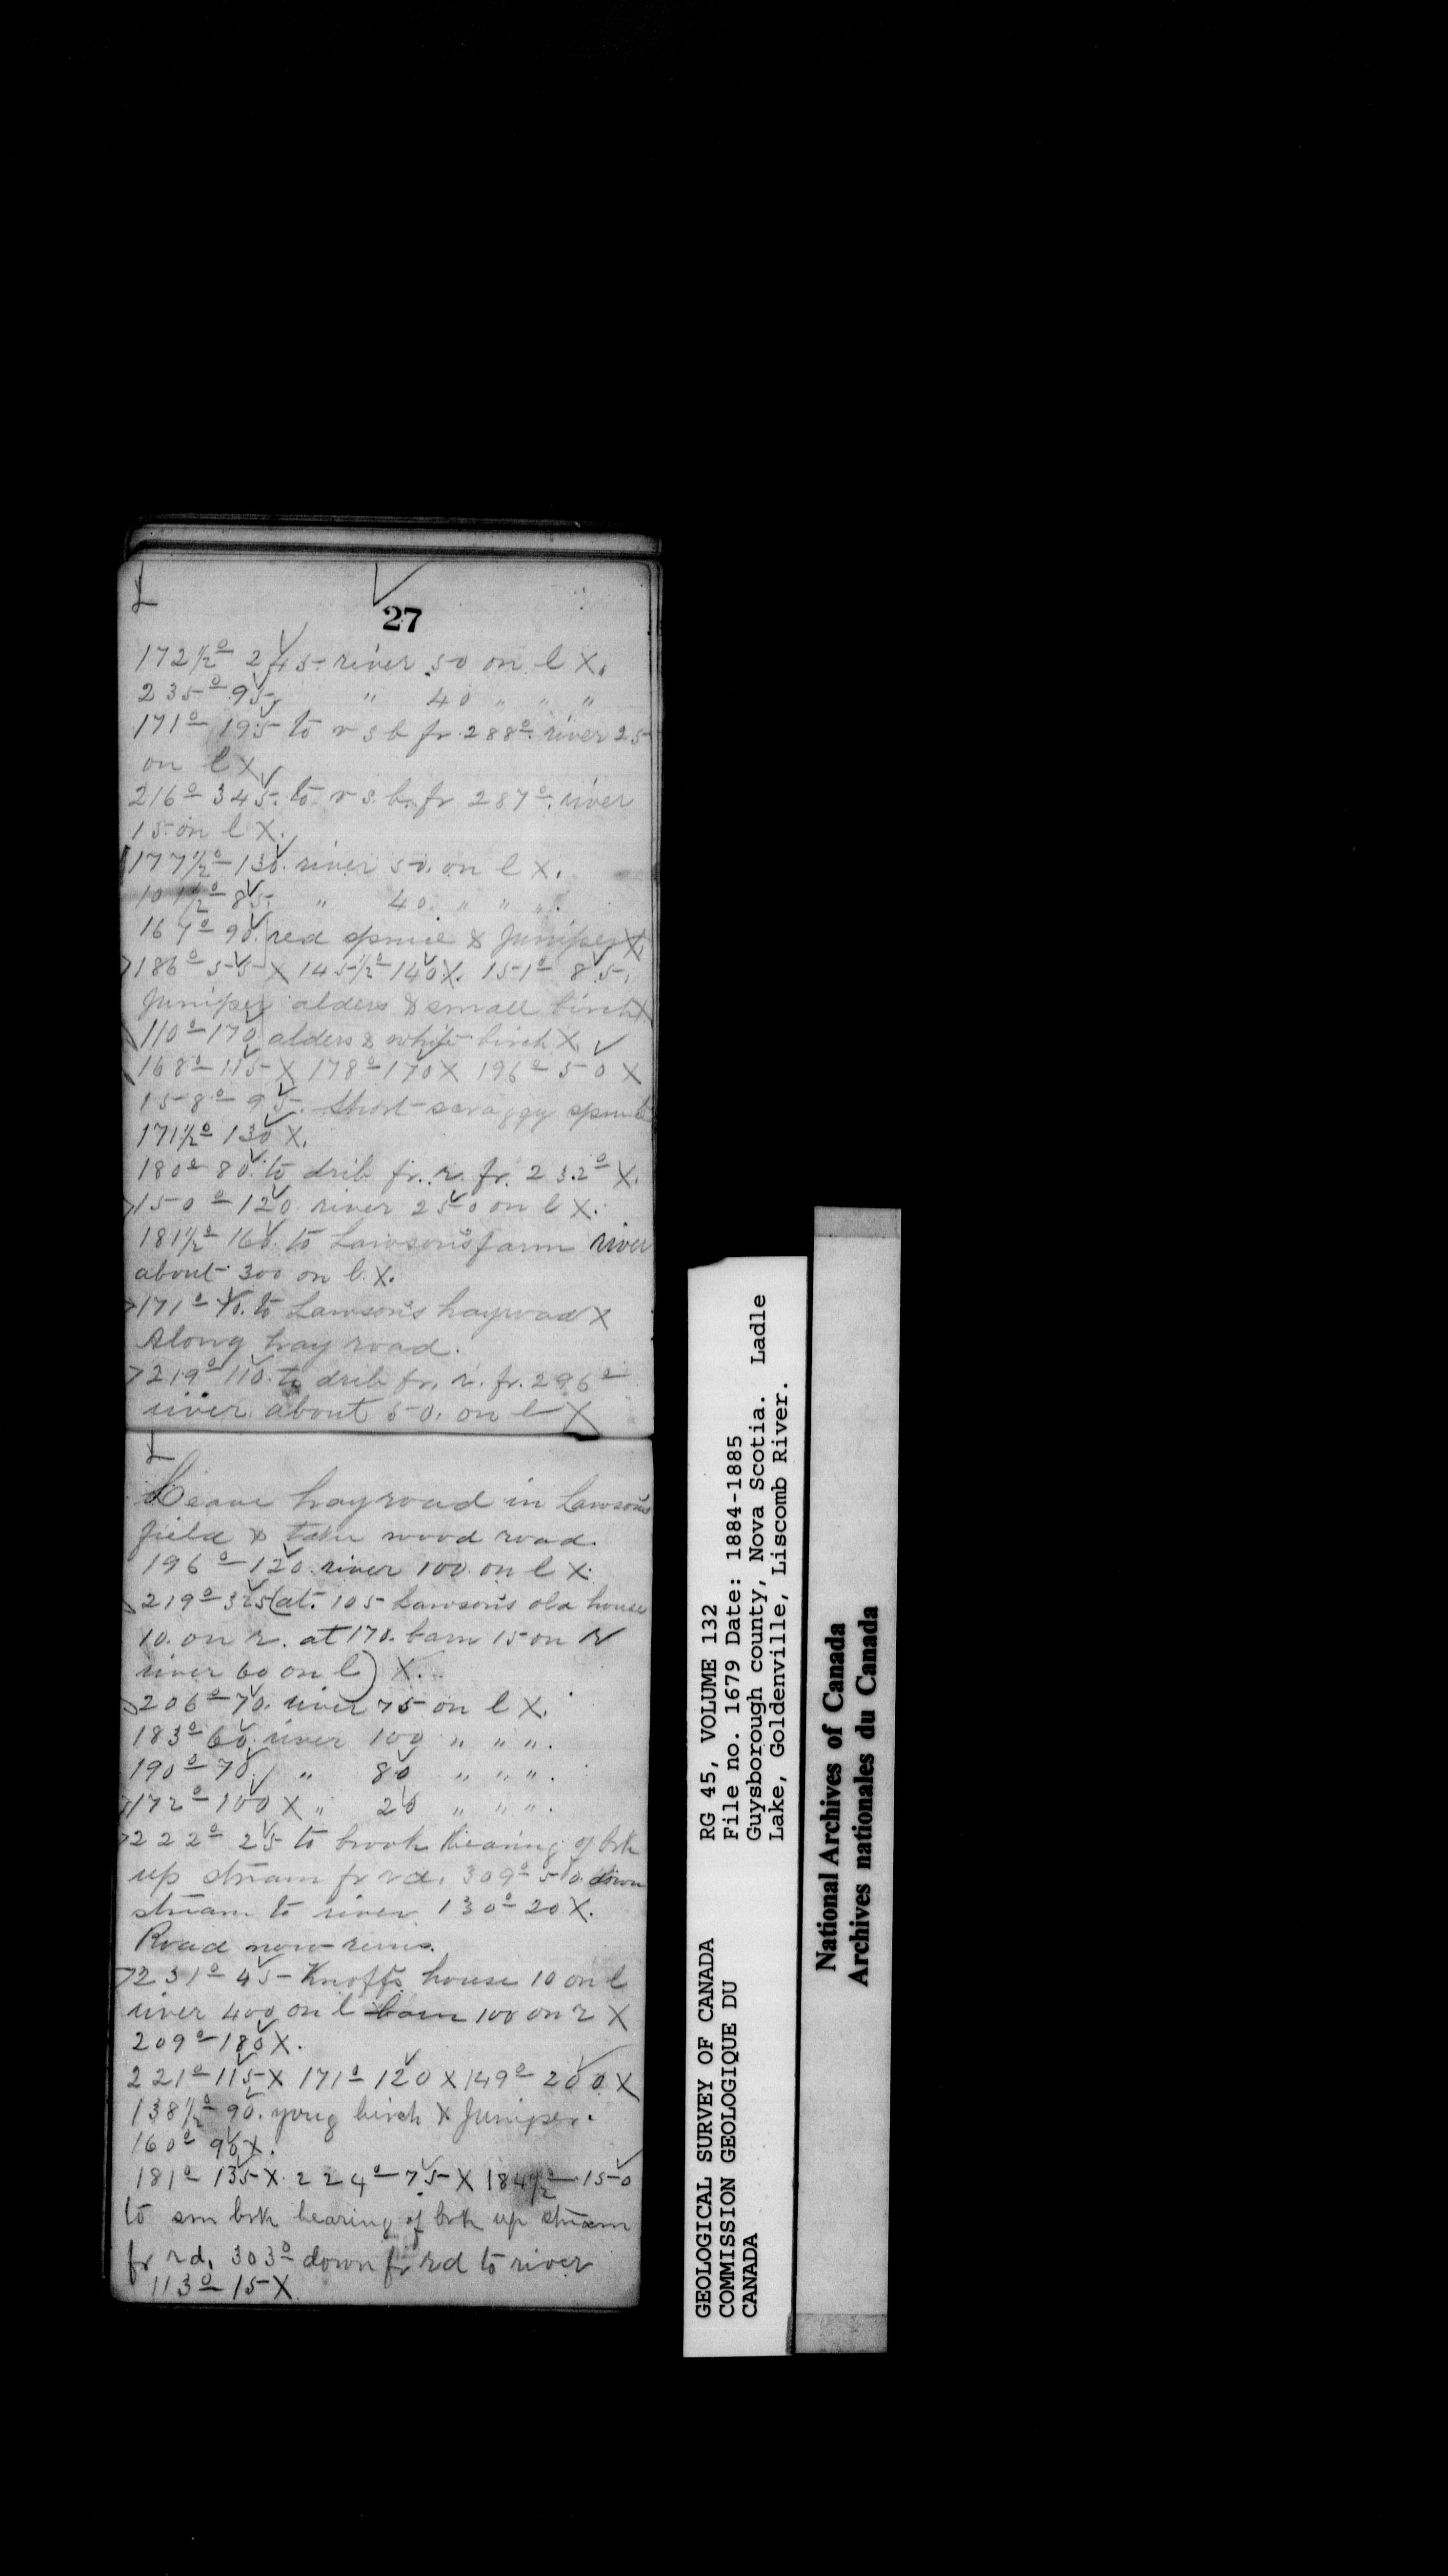 27
172½° 245 river 50 on l X.
235° 95, " 40 " " "
171° 195 to r s b fr. 288° river 25
on l X
216° 345. to r s. b. fr 287° river
15 on l X.
177½° 130. river 50. on l X.
101½° 85. " 40. " " ".
167° 90. red spruce & Juniper X.
186° 55 X 145½° 140 X. 151° 85.
Juniper alders & small birch X
110° 170 alders & white birch X.
168° 115 X 178° 170 X 196° 50 X
158° 95. Short scraggy spruce
171½° 130 X.
180° 80. to drib fr. r. fr. 232° X.
150° 120 river 250 on l X.
181½° 160. to Lawson's farm river
about 300 on l. X.
171° 70. to Lawson's hayroad X
Along hay road.
219° 110. to drib fr. r. fr. 296°
river about 50. on l X
Leave hayroad in Lawson's
field & take wood road.
196° 120. river 100 on l X.
219° 325 (at. 105 Lawson's old house
10. on r. at 170. barn 15 on r
river 60 on l) X.
206° 70. river 75 on l X.
183° 60. river 100 " " ".
190° 70. " 80 " " ".
172° 100 X " 20 " " ".
222° 25 to brook bearing of brk
up stream fr rd. 309° 50. down
stream to river 130° 20 X.
Road now runs.
231° 45 Knoffs house 10 on l
river 400 on l barn 100 on r X
209° 180 X.
221° 115 X 171° 120 X 149° 200 X
138½° 90. young birch & Juniper.
160° 90 X.
181° 135 X. 224° 75 X 184½° 150
to sm brk bearing of brk up stream
fr rd, 303° down fr rd to river
113° 15 X
GEOLOGICAL SURVEY OF CANADA
COMMISSION GEOLOGIQUE DU
CANADA
RG 45, VOLUME 132
File no. 1679 Date: 1884-1885
Guysborough county, Nova Scotia. Ladle
Lake, Goldenville, Liscomb River.
National Archives of Canada
Archives nationales du Canada